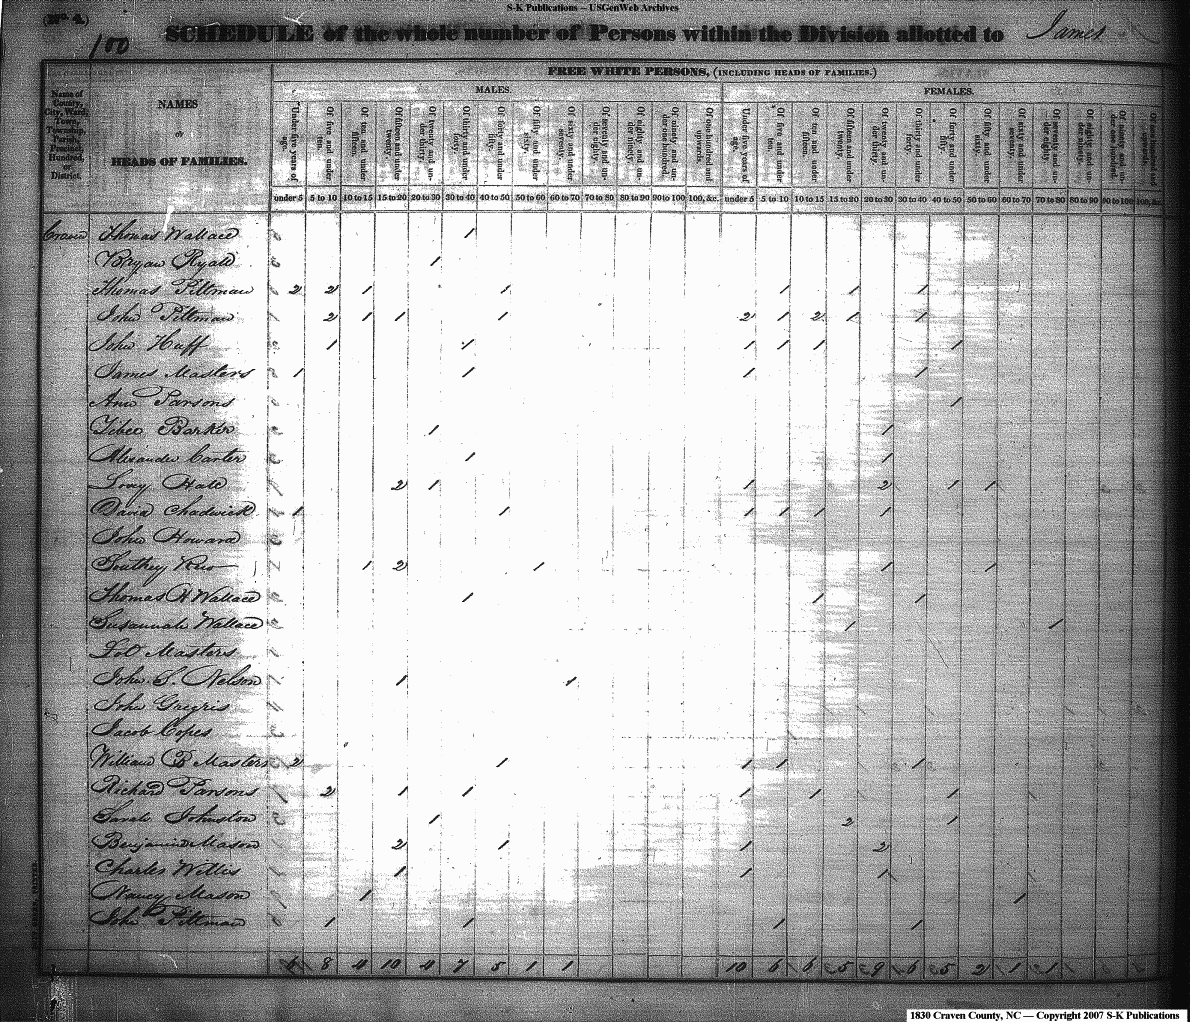 S-K Publications – USGenWeb Archives
(No. 4.)
100 SCHEDULE of the whole number of Persons within the Division allotted to James
FREE WHITE PERSONS, (INCLUDING HEADS OF FAMILIES.)
MALES. FEMALES.
Name of County, City, Ward, Town, Township, Parish, Precinct, Hundred, or District.
NAMES
OF
HEADS OF FAMILIES.
under 5 5 to 10 10 to 15 15 to 20 20 to 30 30 to 40 40 to 50 50 to 60 60 to 70 70 to 80 80 to 90 90 to 100 100, &c. under 5 5 to 10 10 to 15 15 to 20 20 to 30 30 to 40 40 to 50 50 to 60 60 to 70 70 to 80 80 to 90 90 to 100 100, &c.
Craven Thomas Wallace 1
Bryan Ryall 1
Thomas Pittman 2 2 1 1 1 1 1
John Pittman 2 1 1 1 2 1 2 1 1
John Huff 1 1 1 1 1 1
James Masters 1 1 1 1
Ann Parsons 1
Barker 1 1
Alexander Carter 1 1
Hall 2 1 1 2 1 1
David Chadwick 1 1 1 1 1 1
John Howard
Southey 1 2 1 1 1
Thomas H Wallace 1 1 1
Susannah Wallace 1 1
Masters
John S. Nelson 1 1
John
Jacob Copes
William B Masters 2 1 1 1 1
Richard Parsons 2 1 1 1 1 1
Sarah Johnston 1 2 1
Benjamin Mason 2 1 1 2
Charles Willis 1 1 1
Nancy Mason 1 1
John Pittman 1 1 1 1
6 8 4 10 4 7 5 1 1 10 6 6 5 9 6 5 2 1 1
1830 Craven County, NC — Copyright 2007 S-K Publications